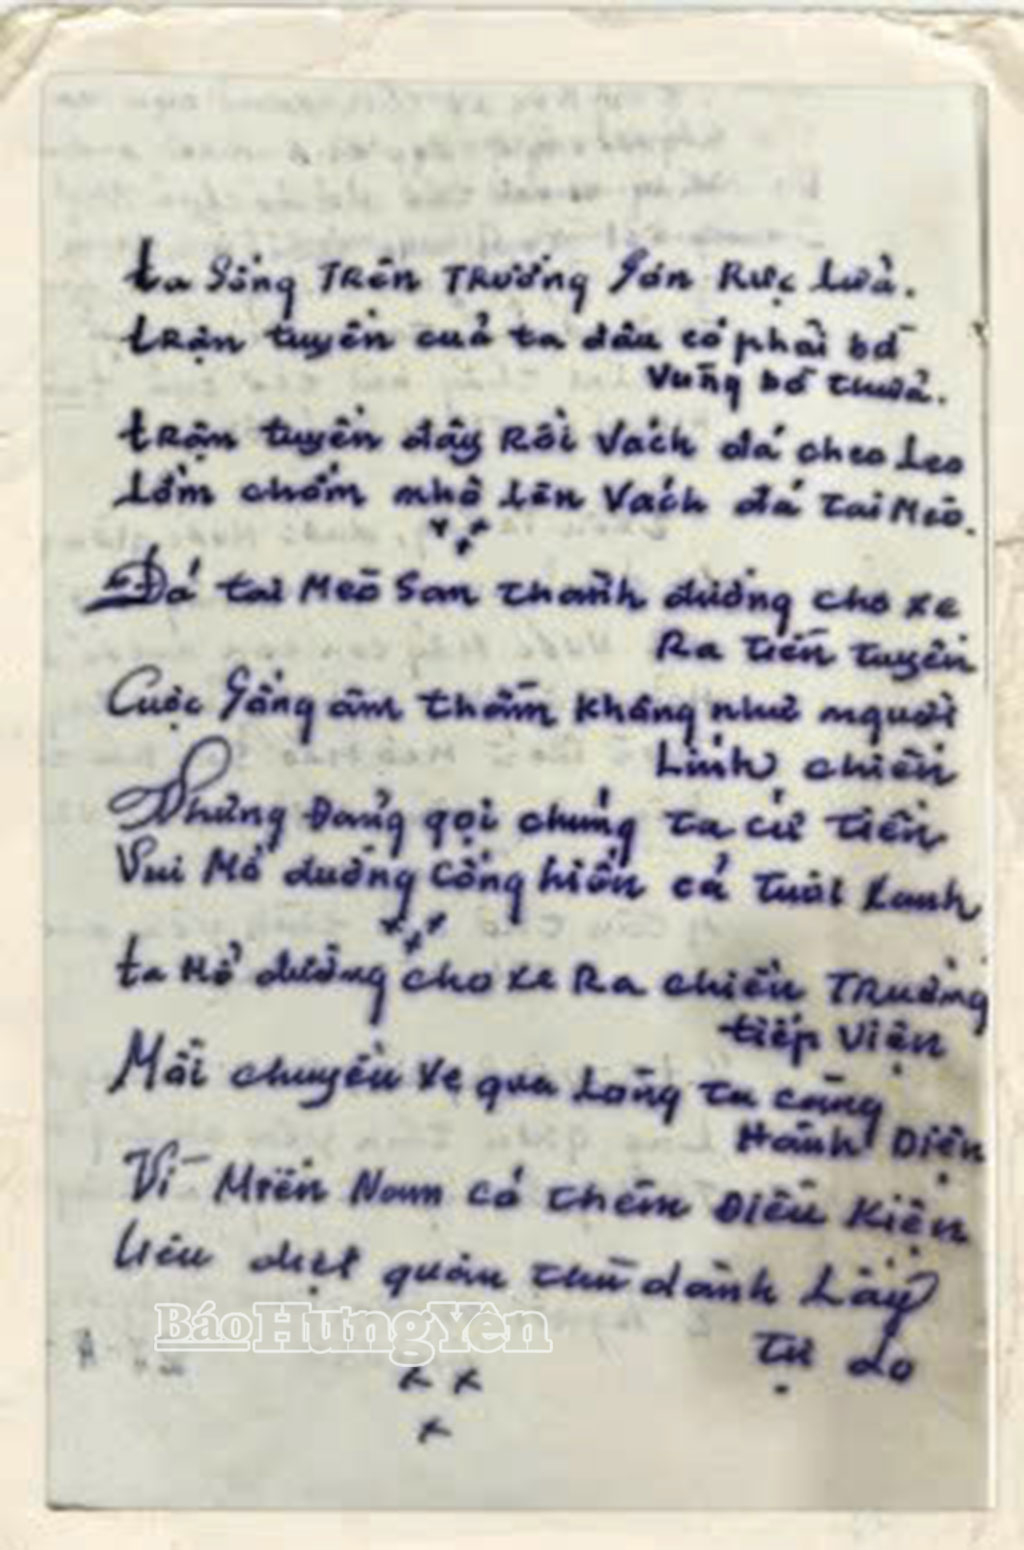 ta sống Trên Trường Sơn Rực lửa.
trận tuyến của ta đâu có phải bờ
vùng bờ thửa.
trận tuyến đây rồi vách đá cheo leo
lởm chởm nhô lên vách đá tai Mèo.
Đá tai Mèo san thành đường cho xe
Ra tiền tuyến
Cuộc sống âm thầm không như người
lính chiến
Nhưng Đảng gọi chúng ta cứ tiến
Vui Mở đường cống hiến cả tuổi xanh
ta Mở đường cho xe Ra chiến Trường
tiếp viện
Mỗi chuyến xe qua lòng ta càng
Hãnh Diện
Vì Miền Nam có thêm Điều Kiện
tiêu diệt quân thù dành lấy
tự do
Báo Hưng Yên